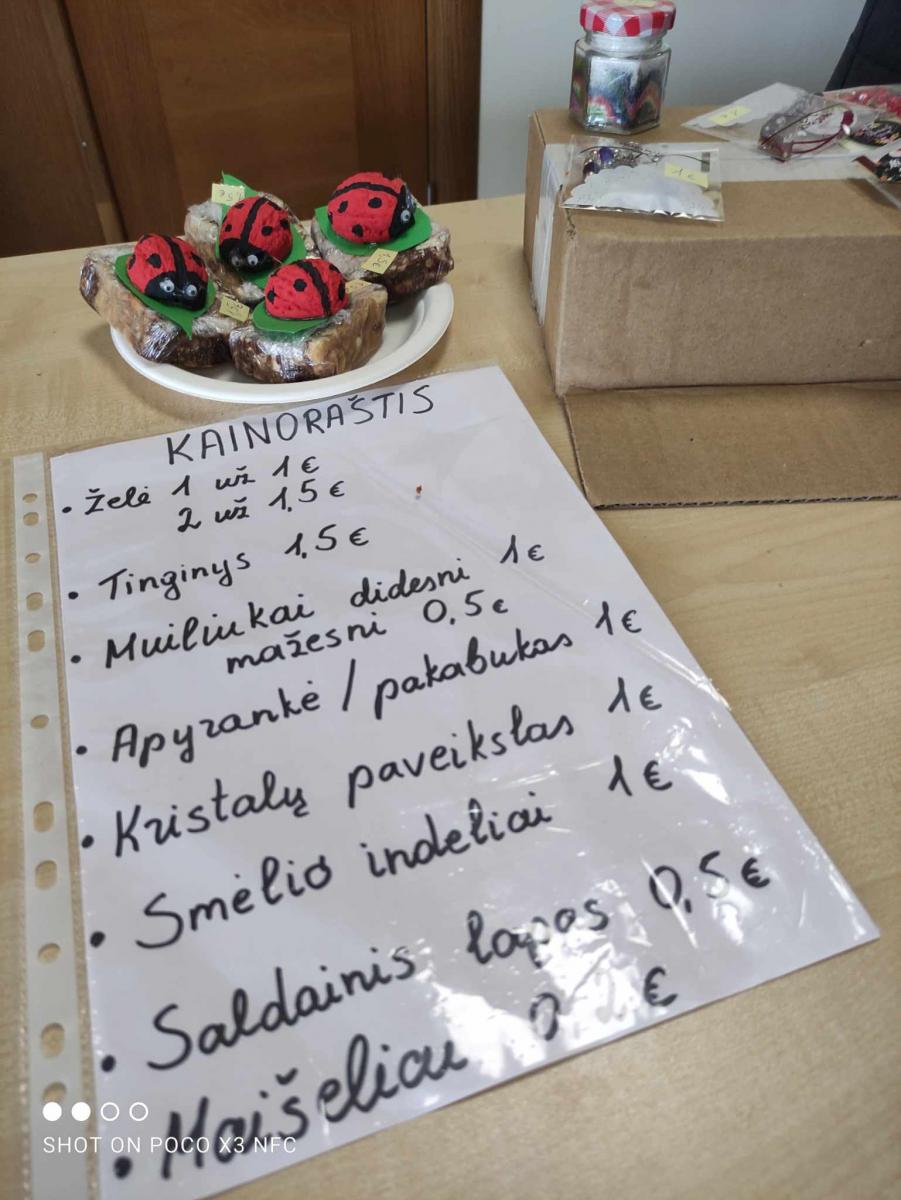 1€
1,5€
KAINORAŠTIS
• Želė 1 už 1€
2 už 1,5€
• Tinginys 1,5€
• Muiliukai didesni 1€
mažesni 0,5€
• Apyrankė / pakabukas 1€
• Kristalų paveikslas 1€
• Smėlio indeliai 1€
• Saldainis lapas 0,5€
• Maišeliai
SHOT ON POCO X3 NFC